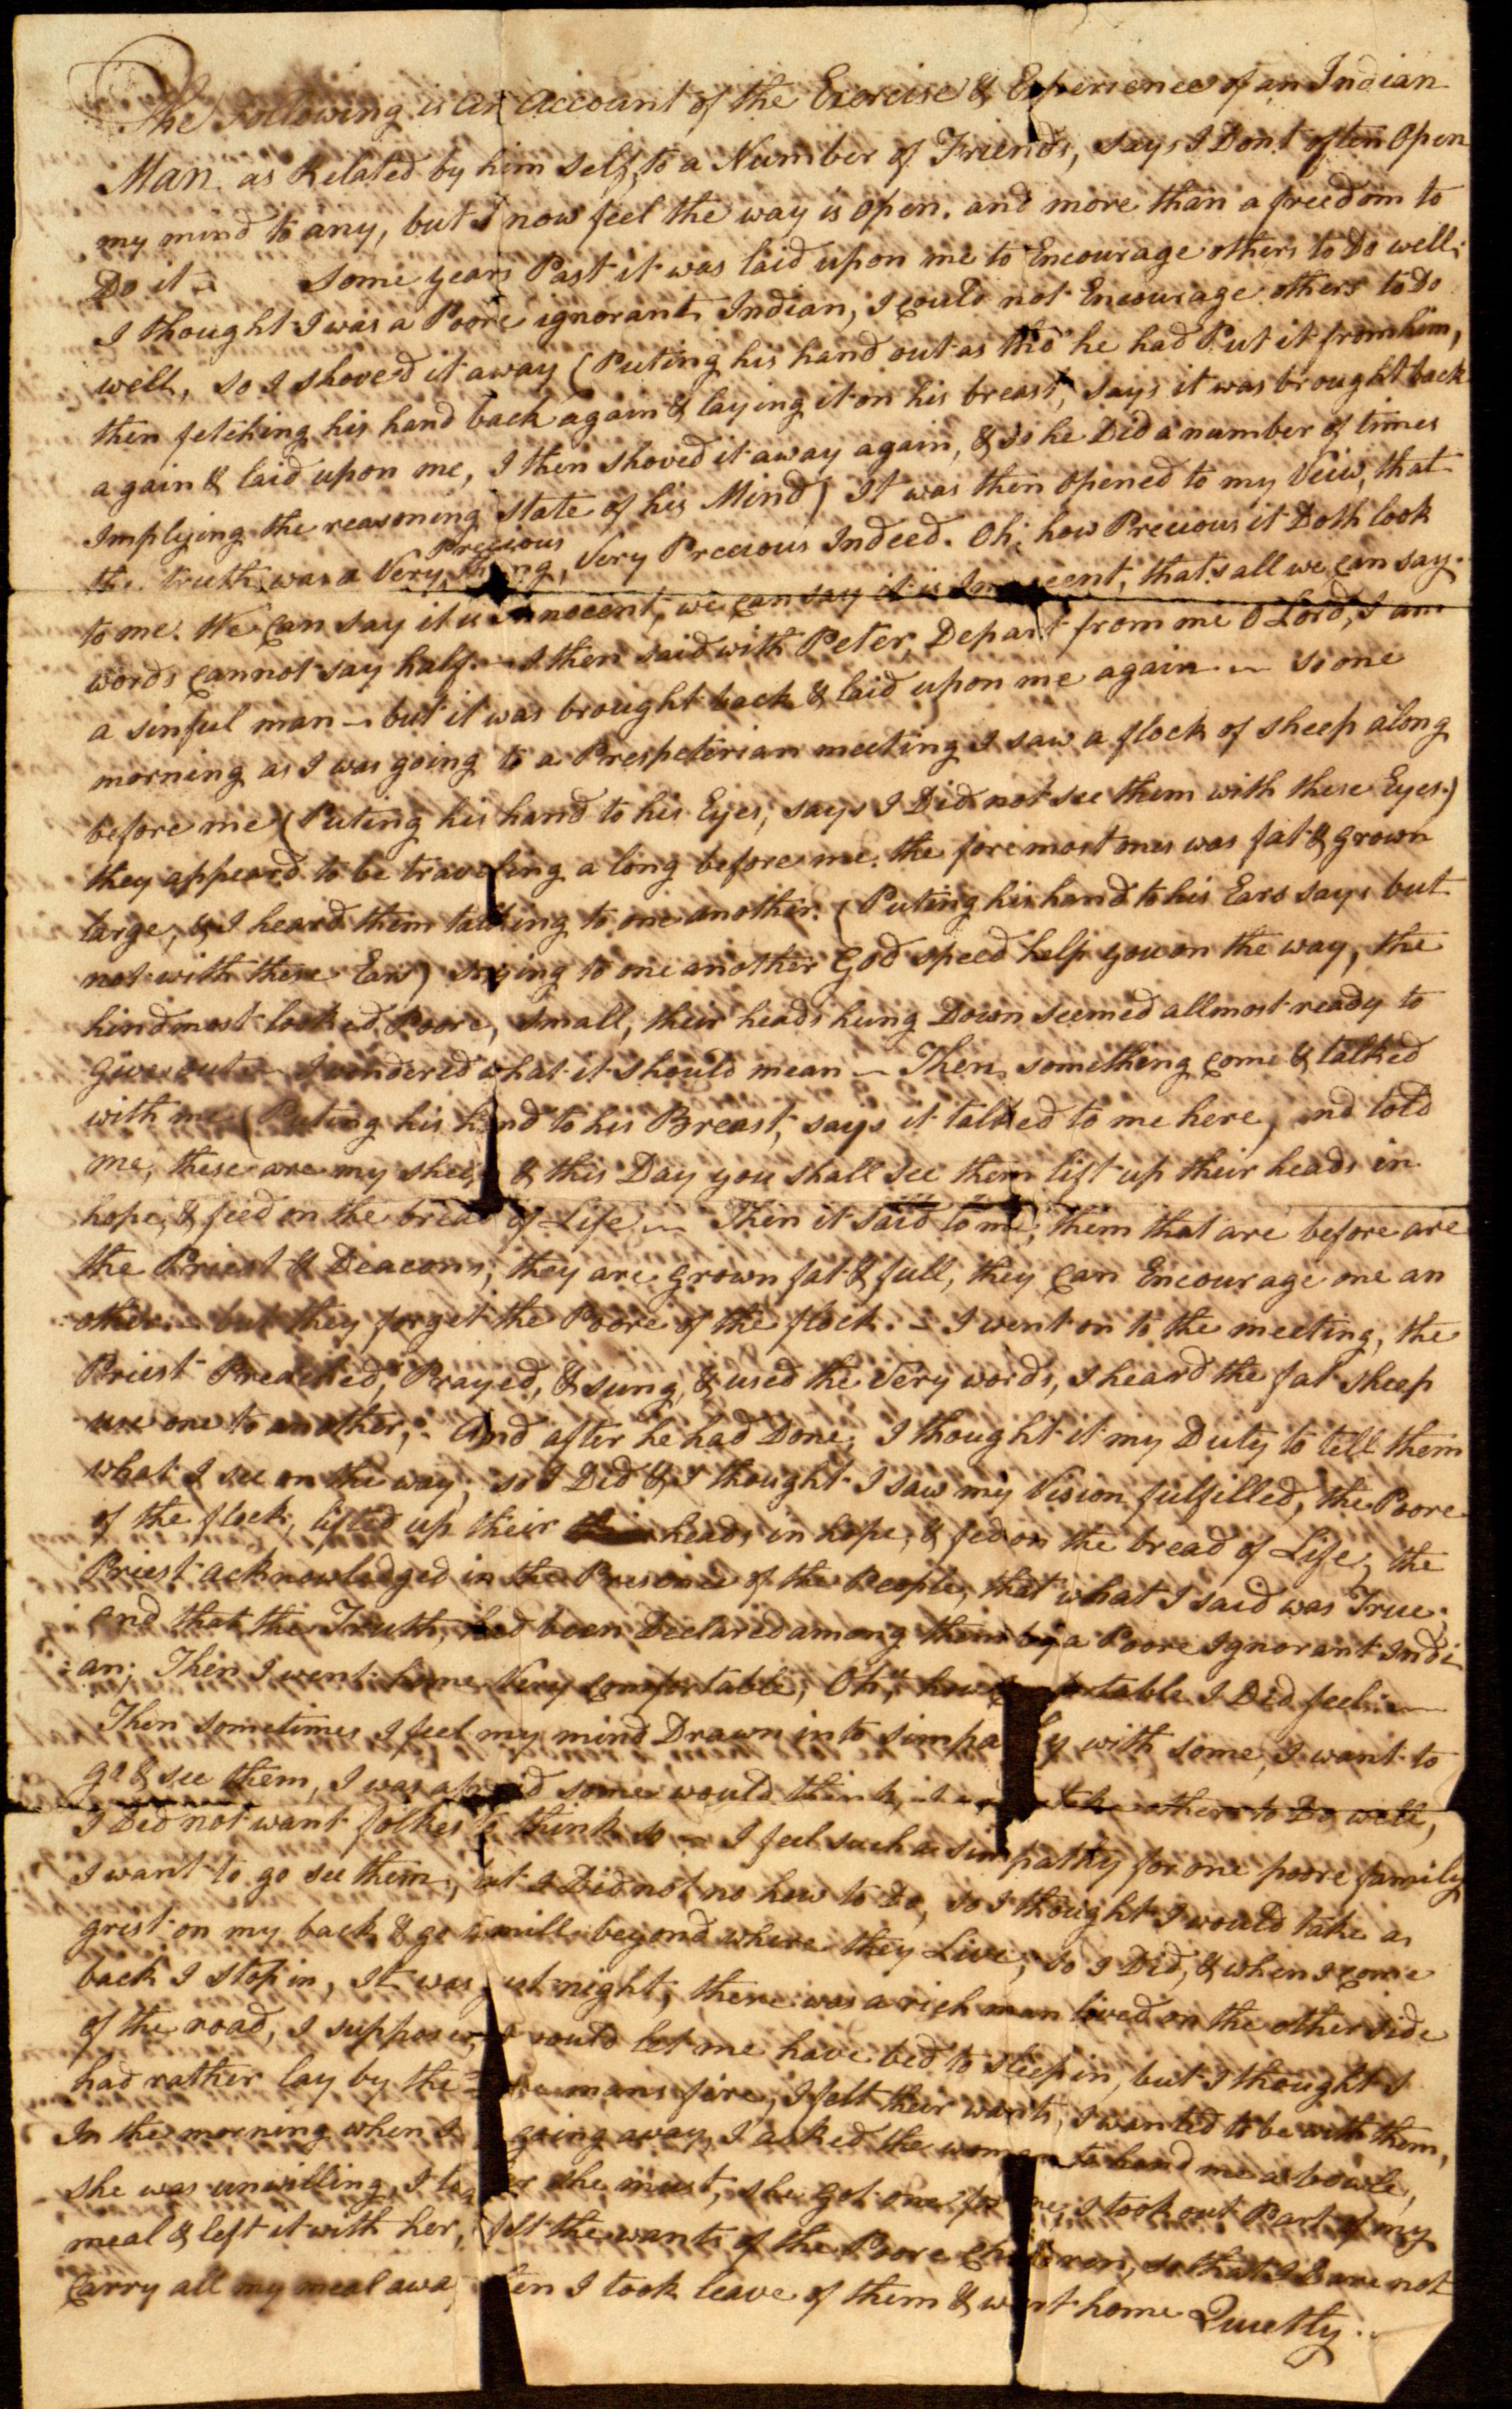 The Following is an Account of the Exercise & Experience of an Indian
Man as Related by him self, to a Number of Friends, says I Dont often Open
my mind to any, but I now feel the way is open. and more than a freedom to
Do it — some years Past it was laid upon me to Encourage others to Do well;
I thought I was a Poore ignorant Indian, I could not Encourage others to Do
well, so I shoved it away (Puting his hand out as tho he had Put it from him,
then fetching his hand back again & laying it on his breast, says it was brought back
again & laid upon me, I then shoved it away again, & so he Did a number of times
Implying the reasoning state of his Mind) It was then Opened to my View, that
the truth was a Very Precious thing, Very Precious Indeed. Oh; how Precious it Doth look
to me. We can say it is Innocent, we can say it is Innocent, thats all we can say.
words cannot say half.— I then said with Peter, Depart from me O Lord, I am
a sinful man — but it was brought back & laid upon me again — so one
morning as I was going to a Prespeterian meeting I saw a flock of sheep along
before me (Puting his hand to his Eyes, says I Did not see them with these Eyes.)
they appeard to be traveling a long before me. the foremost ones was fat & grown
large, & I heard them talking to one another. (Puting his hand to his Ears says but
not with these Ears) saying to one another God speed help you on the way, the
hindmost looked Poore, small, their heads hung Down seemed allmost ready to
give out — I wondered what it should mean — Then something come & talked
with me (Puting his hand to his Breast, says it talked to me here) nd told
me, these are my sheep & this Day you shall see them lift up their heads in
hope, & feed on the bread of Life — Then it said to me, them that are before are
the Priest & Deacons, they are grown fat & full, they can Encourage one an
other — but they forget the Poore of the flock. — I went on to the meeting, the
Priest Preached, Prayed, & sung, & used the Very words, I heard the fat sheep
use one to another; - And after he had Done, I thought it my Duty to tell them
what I see on the way, so I Did & I thought I saw my Vision fulfilled, the Poore
of the flock, lifted up their heads in hope, & fed on the bread of Life, the
Priest acknowledged in the Presence of the People, that what I said was True
and that the Truth, had been Declared among them by a Poore Ignorant Indi
an; Then I went home Very comfortable, Oh, how table I Did feel —
Then sometimes I feel my mind Drawn into simpa y with some, I want to
go & see them, I was afraid some would think, others to Do well,
I Did not want folkes to think so — I feel such a simpathy for one poore family
I want to go see them, but I Did not no how to Do, so I thought I would take a
grist on my back & go to mill beyond where they Live, so I Did, & when I come
back I stop in, It was just night, there was a rich man lived on the other side
of the road, I suppose would let me have bed to sleep in, but I thought I
had rather lay by the mans fire, I felt their wants, I wanted to be with them,
In the morning when I going away, I asked the woman to hand me a bowle,
she was unwilling, I she must, she got one for me, I took out Part of my
meal & left it with her, felt the wants of the Poore Children, so that I Dare not
Carry all my meal awa en I took leave of them & went home Quietly.